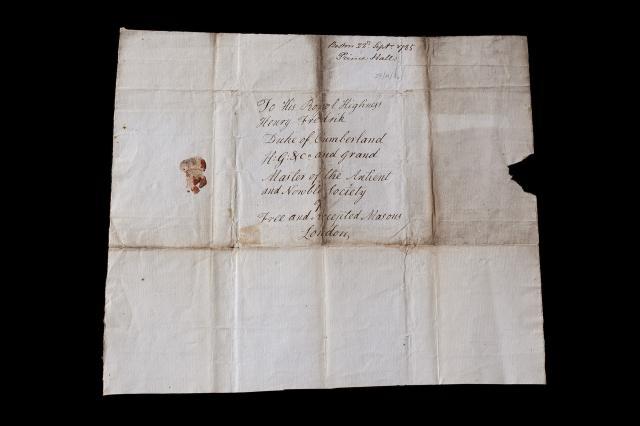 Boston 22d Septr 1785
Prince Hall
To His Royal Highness
Henry Fredrik
Duke of Cumberland
and Grand
Master of the Antient
and Nowble Society
of
Free and Accepted Masons
London,